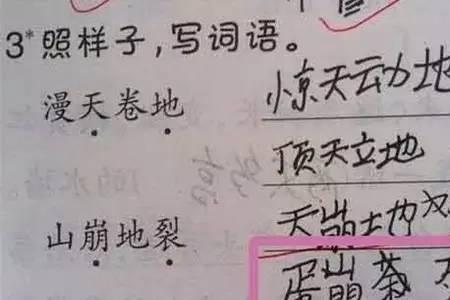 3*照样子,写词语。
漫天卷地 惊天动地
顶天立地
山崩地裂 天崩地
蛋崩茶